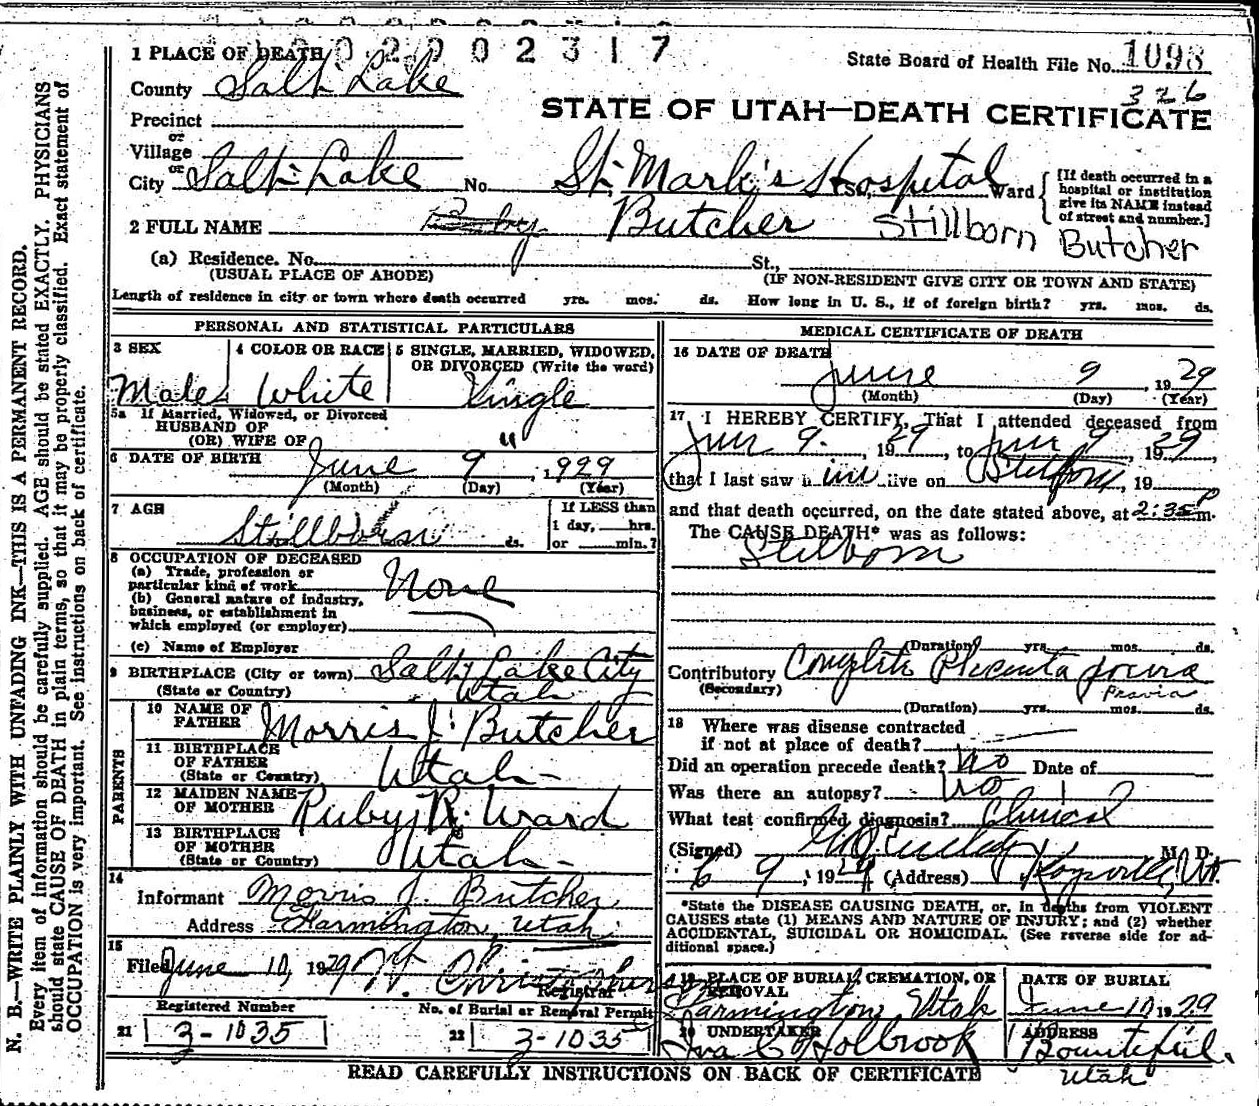 0 0 2 0 0 2 3 1 7
1 PLACE OF DEATH
State Board of Health File No. 1098
326
County Salt Lake
STATE OF UTAH—DEATH CERTIFICATE
Precinct
or
Village
or
City Salt Lake No. St. Mark's Hospital Ward
[If death occurred in a
hospital or institution
give its NAME instead
of street and number.]
2 FULL NAME Baby Butcher Stillborn Butcher
(a) Residence. No. St.,
(USUAL PLACE OF ABODE) (IF NON-RESIDENT GIVE CITY OR TOWN AND STATE)
Length of residence in city or town where death occurred yrs. mos. ds. How long in U. S., if of foreign birth? yrs. mos. ds.
PERSONAL AND STATISTICAL PARTICULARS
3 SEX 4 COLOR OR RACE 5 SINGLE, MARRIED, WIDOWED,
OR DIVORCED (Write the word)
Male White Single
5a If Married, Widowed, or Divorced
HUSBAND OF
(OR) WIFE OF "
6 DATE OF BIRTH June 9, 1929
(Month) (Day) (Year)
7 AGE Stillborn ds.
If LESS than
1 day, hrs.
or min.?
8 OCCUPATION OF DECEASED
(a) Trade, profession or
particular kind of work None
(b) General nature of industry,
business, or establishment in
which employed (or employer)
(c) Name of Employer
9 BIRTHPLACE (City or town) Salt Lake City
(State or Country) Utah
PARENTS
10 NAME OF
FATHER Morris J. Butcher
11 BIRTHPLACE
OF FATHER
(State or Country) Utah
12 MAIDEN NAME
OF MOTHER Ruby R. Ward
13 BIRTHPLACE
OF MOTHER
(State or Country) Utah
14
Informant Morris J. Butcher
Address Farmington, Utah
15
Filed June 10, 1929
Registrar
Registered Number No. of Burial or Removal Permit
21 3-1035 22 3-1035
MEDICAL CERTIFICATE OF DEATH
16 DATE OF DEATH
June 9, 1929
(Month) (Day) (Year)
17 I HEREBY CERTIFY, That I attended deceased from
June 9, 1929, to June 9 1929
that I last saw h im alive on Stillborn, 19
and that death occurred, on the date stated above, at 2:35 P m.
The CAUSE DEATH* was as follows:
Stilborn
(Duration) yrs. mos. ds.
Contributory Complete Placenta previa
(Secondary) Pravia
(Duration) yrs. mos. ds.
18 Where was disease contracted
if not at place of death?
Did an operation precede death? No Date of
Was there an autopsy? No
What test confirmed diagnosis? Clinical
(Signed) M. D.
6 9, 1929 (Address) Kaysville, Ut.
*State the DISEASE CAUSING DEATH, or, in deaths from VIOLENT
CAUSES state (1) MEANS AND NATURE OF INJURY; and (2) whether
ACCIDENTAL, SUICIDAL OR HOMICIDAL. (See reverse side for ad-
ditional space.)
19 PLACE OF BURIAL, CREMATION, OR
REMOVAL
Farmington, Utah
DATE OF BURIAL
June 10 1929
20 UNDERTAKER
Iva C Holbrook
ADDRESS
Bountiful,
Utah
READ CAREFULLY INSTRUCTIONS ON BACK OF CERTIFICATE
N. B.—WRITE PLAINLY WITH UNFADING INK—THIS IS A PERMANENT RECORD.
Every item of information should be carefully supplied. AGE should be stated EXACTLY. PHYSICIANS
should state CAUSE OF DEATH in plain terms, so that it may be properly classified. Exact statement of
OCCUPATION is very important. See instructions on back of certificate.